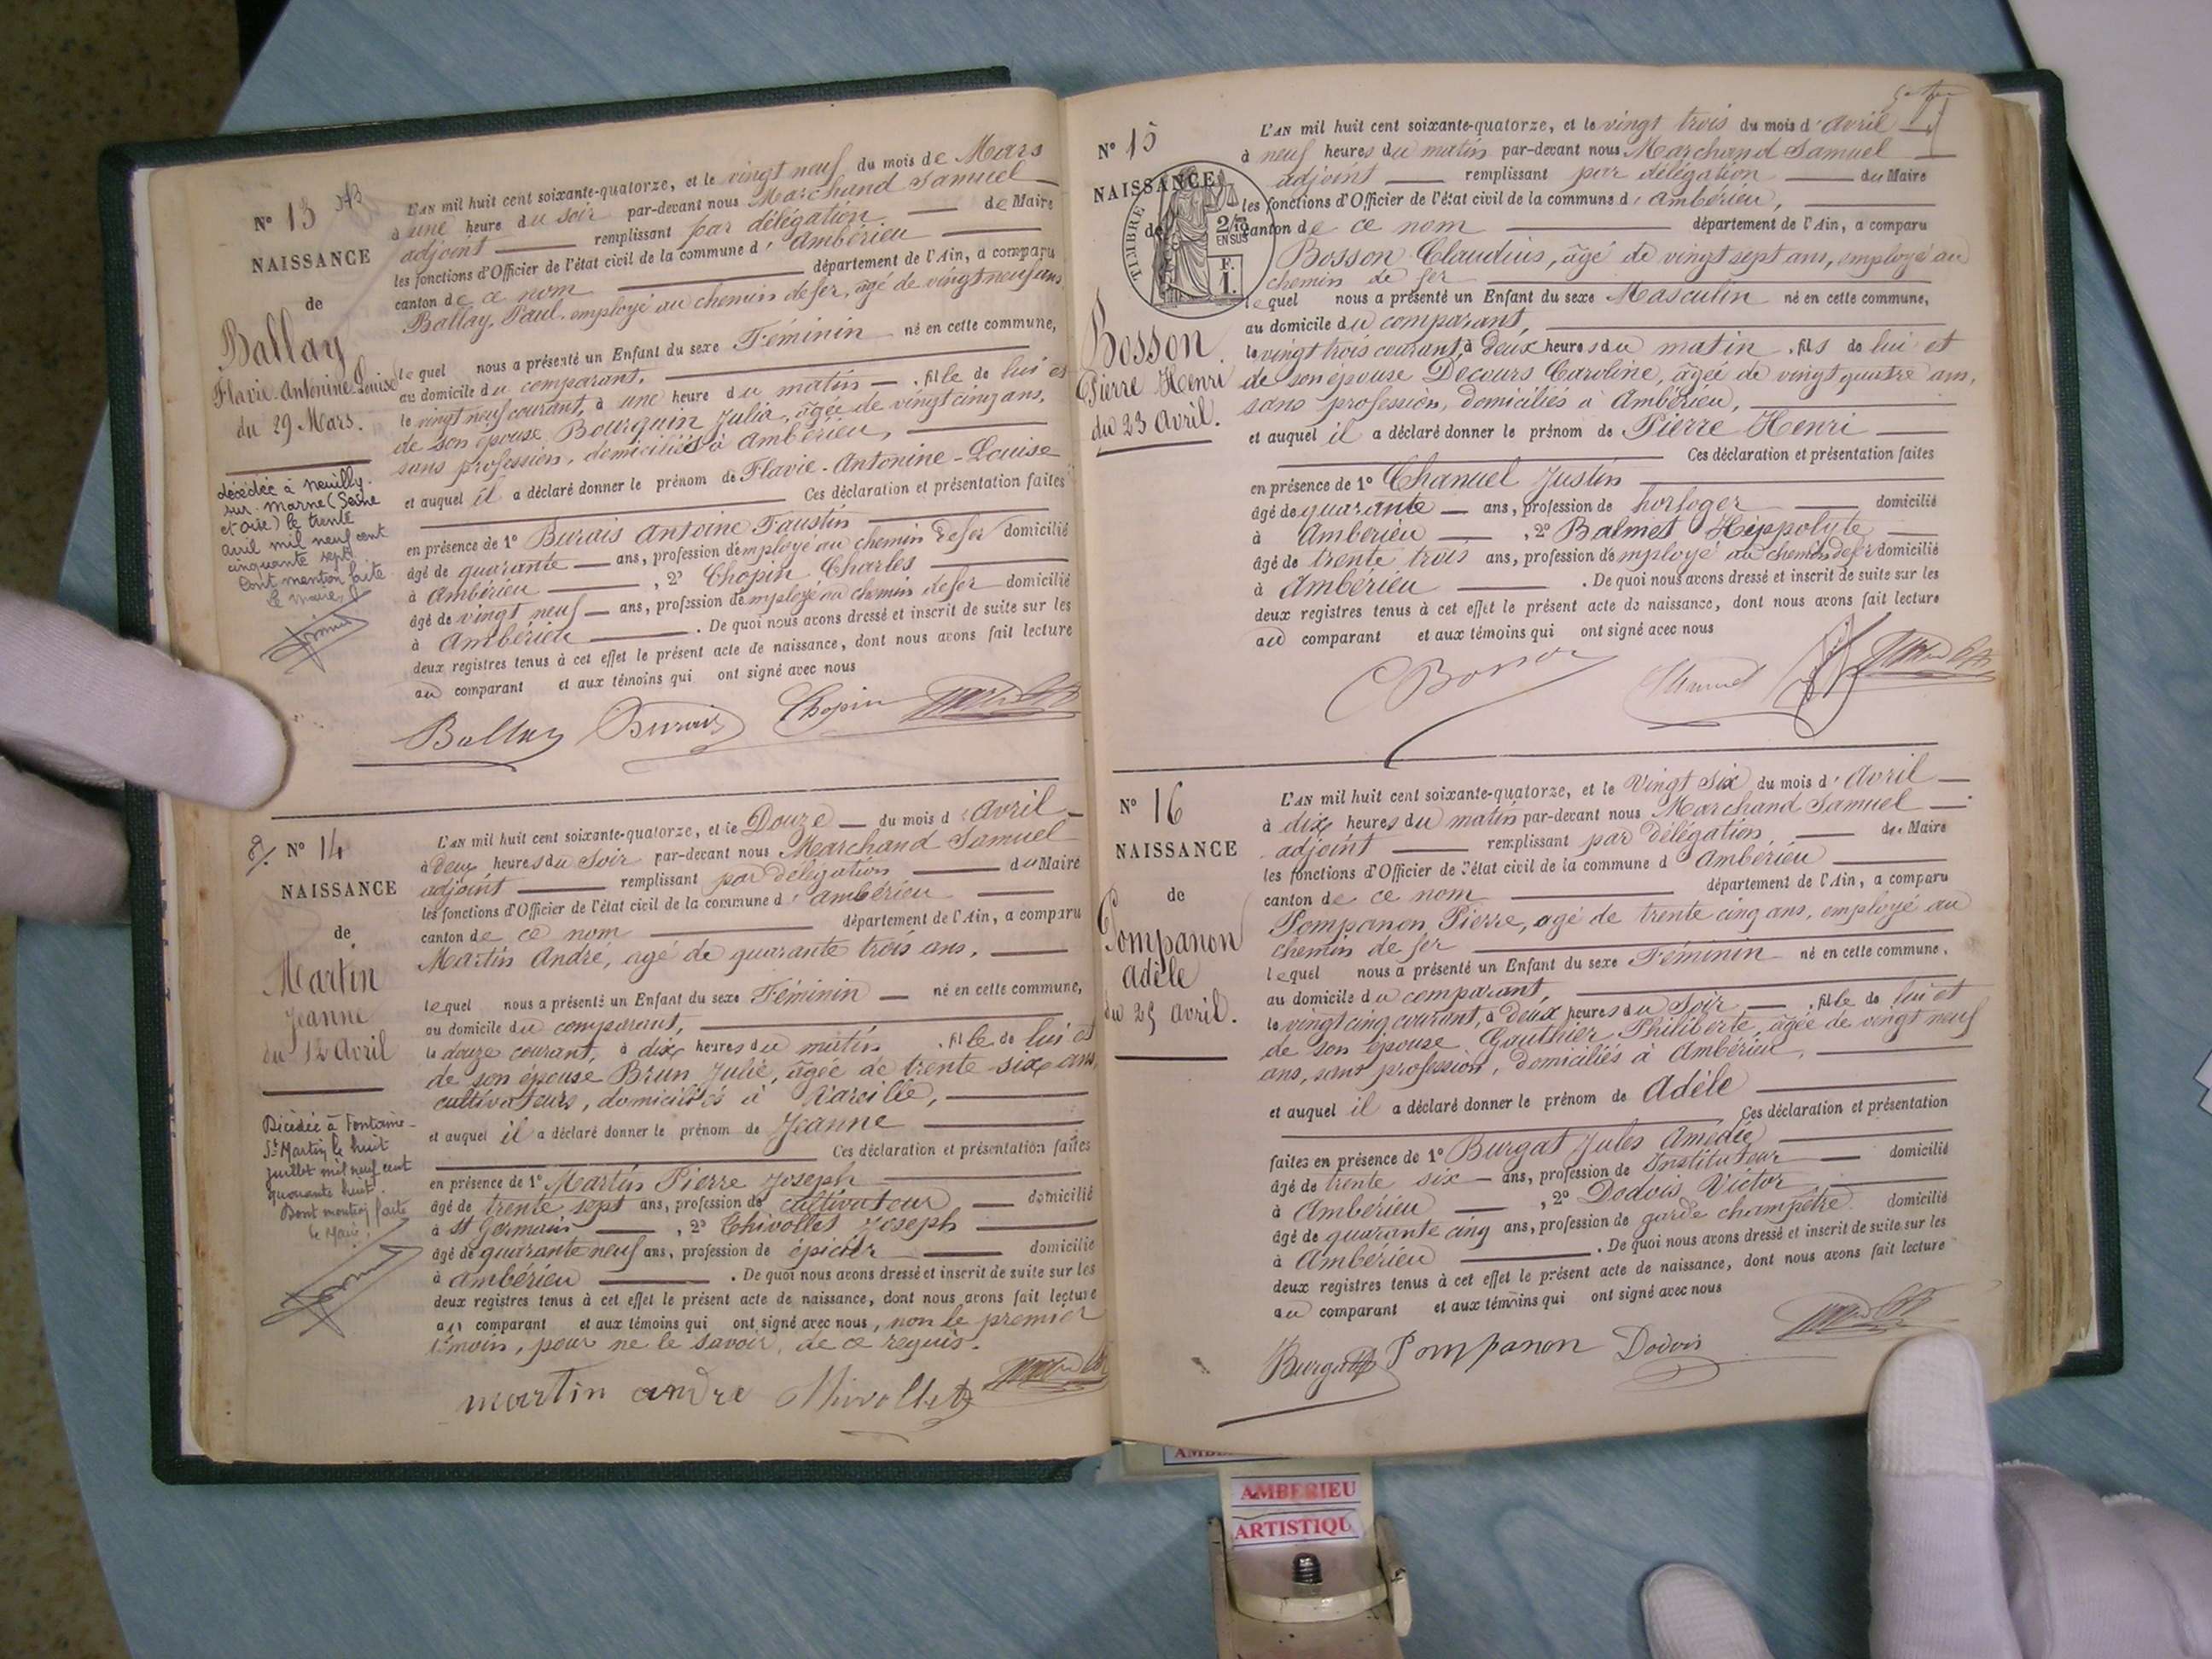 N° 13
NAISSANCE
de
Ballay
Flavie-Antonine-Louise
du 29 Mars.
décédée à Neuilly-
sur-Marne (Seine
et Oise) le trente
avril mil neuf cent
cinquante sept
Dont mention faite
le maire,
L'AN mil huit cent soixante-quatorze, et le vingt neuf du mois de Mars
à une heure du soir par-devant nous Marchand Samuel
adjoint remplissant par délégation de Maire
les fonctions d'Officier de l'état civil de la commune d'Ambérieu
canton de ce nom département de l'Ain, a comparu
Ballay, Paul, employé au chemin de fer, âgé de vingt neuf ans,
lequel nous a présenté un Enfant du sexe Féminin né en cette commune,
au domicile du comparant,
le vingt neuf courant, à une heure du matin, fille de lui et
de son épouse Bourguin Julia, âgée de vingt cinq ans,
sans profession, domiciliés à Ambérieu,
et auquel il a déclaré donner le prénom de Flavie-Antonine-Louise
Ces déclaration et présentation faites
en présence de 1° Burais Antoine Faustin
âgé de quarante ans, profession d'employé au chemin de fer domicilié
à Ambérieu, 2° Chopin Charles
âgé de vingt neuf ans, profession d'employé au chemin de fer domicilié
à Ambérieu. De quoi nous avons dressé et inscrit de suite sur les
deux registres tenus à cet effet le présent acte de naissance, dont nous avons fait lecture
au comparant et aux témoins qui ont signé avec nous
Ballay Burais Chopin
N° 14
NAISSANCE
de
Martin
Jeanne
du 12 Avril
Décédée à Fontaine-
St Martin le huit
juillet mil neuf cent
quarante huit.
Dont mention faite
le Maire,
L'AN mil huit cent soixante-quatorze, et le Douze du mois d'Avril
à deux heures du soir par-devant nous Marchand Samuel
adjoint remplissant par délégation du Maire
les fonctions d'Officier de l'état civil de la commune d'Ambérieu
canton de ce nom département de l'Ain, a comparu
Martin André, agé de quarante trois ans,
lequel nous a présenté un Enfant du sexe Féminin né en cette commune,
au domicile du comparant,
le douze courant, à dix heures du matin, fille de lui et
de son épouse Brun Julie, âgée de trente six ans,
cultivateurs, domiciliés à Vareille,
et auquel il a déclaré donner le prénom de Jeanne
Ces déclaration et présentation faites
en présence de 1° Martin Pierre Joseph
âgé de trente sept ans, profession de cultivateur domicilié
à St Germain, 2° Chivollet Joseph
âgé de quarante neuf ans, profession de épicier domicilié
à Ambérieu. De quoi nous avons dressé et inscrit de suite sur les
deux registres tenus à cet effet le présent acte de naissance, dont nous avons fait lecture
au comparant et aux témoins qui ont signé avec nous, non le premier
témoin, pour ne le savoir, de ce requis.
martin andre Chivollet
N° 15
NAISSANCE
de
TIMBRE
2/10
EN SUS
F.
1.
Bosson
Pierre Henri
du 23 Avril.
L'AN mil huit cent soixante-quatorze, et le vingt trois du mois d'Avril
à neuf heures du matin par-devant nous Marchand Samuel
adjoint remplissant par délégation du Maire
les fonctions d'Officier de l'état civil de la commune d'Ambérieu,
canton de ce nom département de l'Ain, a comparu
Bosson Claudius, âgé de vingt sept ans, employé au
chemin de fer
lequel nous a présenté un Enfant du sexe Masculin né en cette commune,
au domicile du comparant,
le vingt trois courant, à deux heures du matin, fils de lui et
de son épouse Decours Caroline, âgée de vingt quatre ans,
sans profession, domiciliés à Ambérieu,
et auquel il a déclaré donner le prénom de Pierre Henri
Ces déclaration et présentation faites
en présence de 1° Chanuel Justin
âgé de quarante ans, profession de horloger domicilié
à Ambérieu, 2° Balmet Hippolyte
âgé de trente trois ans, profession d'employé au chemin de fer domicilié
à Ambérieu. De quoi nous avons dressé et inscrit de suite sur les
deux registres tenus à cet effet le présent acte de naissance, dont nous avons fait lecture
au comparant et aux témoins qui ont signé avec nous
C Bosson Chanuel
N° 16
NAISSANCE
de
Pompanon
Adèle
du 25 Avril.
L'AN mil huit cent soixante-quatorze, et le Vingt Six du mois d'Avril
à dix heures du matin par-devant nous Marchand Samuel
adjoint remplissant par délégation du Maire
les fonctions d'Officier de l'état civil de la commune d'Ambérieu
canton de ce nom département de l'Ain, a comparu
Pompanon Pierre, agé de trente cinq ans, employé au
chemin de fer
lequel nous a présenté un Enfant du sexe Féminin né en cette commune,
au domicile du comparant,
le vingt cinq courant, à deux heures du Soir, fille de lui et
de son épouse Gouthier Philiberte, âgée de vingt neuf
ans, sans profession, domiciliés à Ambérieu,
et auquel il a déclaré donner le prénom de Adèle
Ces déclaration et présentation
faites en présence de 1° Burgat Jules Amédée
âgé de trente six ans, profession de Instituteur domicilié
à Ambérieu, 2° Dodois Victor,
âgé de quarante cinq ans, profession de garde champêtre domicilié
à Ambérieu. De quoi nous avons dressé et inscrit de suite sur les
deux registres tenus à cet effet le présent acte de naissance, dont nous avons fait lecture
au comparant et aux témoins qui ont signé avec nous
Burgat Pompanon Dodois
AMBERIEU
ARTISTIQU